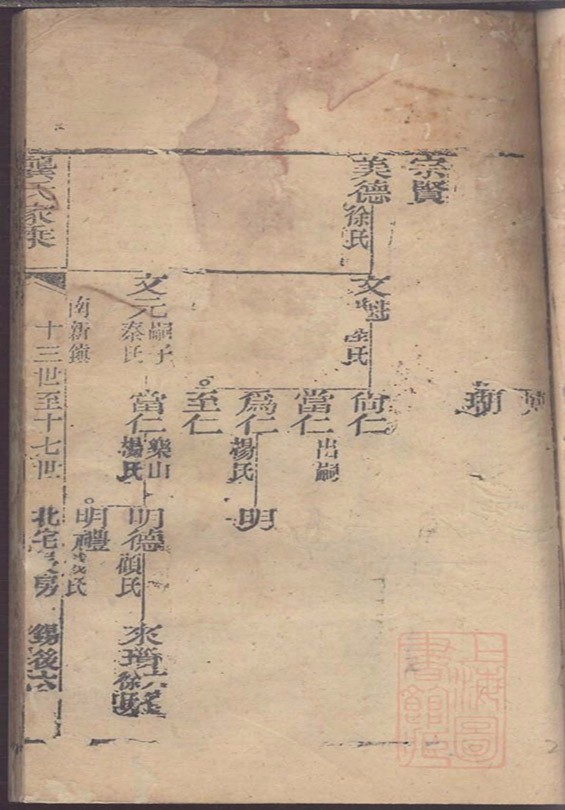 宗賢
美德 徐氏
文魁
尚仁
當仁 出嗣
爲仁 楊氏
至仁
明
瑚
文元 嗣子 秦氏
當仁 樂山 楊氏
明德 顧氏
明禮
龔氏家乘
南新鎮
十三世至十七世
北宅
錫後
上海圖書館藏